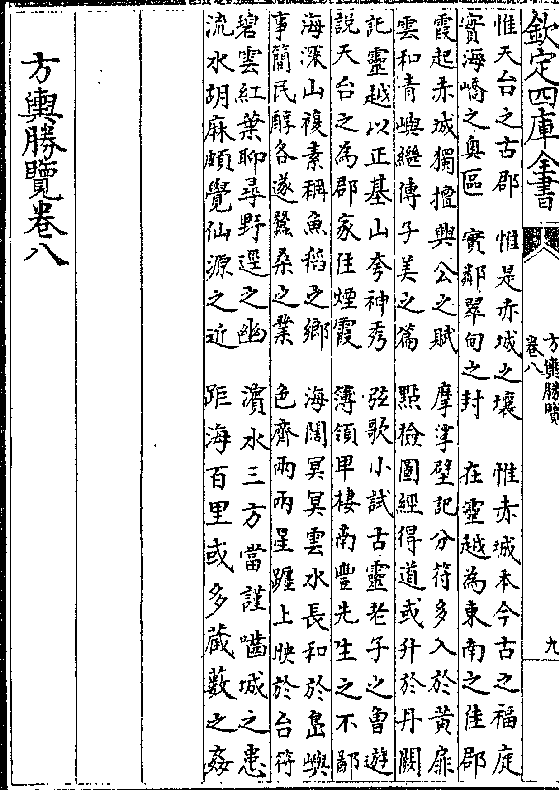 欽定四庫全書
方輿勝覽
卷八
九
惟天台之古郡 惟是赤城之壤 惟赤城本今古之福庭
實海嶠之奧區 實鄰翠甸之封 在靈越為東南之佳郡
霞起赤城獨擅興公之賦 摩挲壁記分符多入於黄扉
雲和青嶼繼傳子美之篇 點檢圖經得道或升於丹闕
記靈越以正基山夸神秀 弦歌小試古靈老子之曽遊
説天台之為郡家住煙霞 簿領甲棲南豐先生之不鄙
海深山複素稱魚稻之鄉 海闊冥冥雲水長和於島嶼
事簡民醇各遂蠶桑之業 色齊兩兩星躔上映於台符
碧雲紅葉聊尋野逕之幽 濱水三方當謹囓城之患
流水胡麻頗覺仙源之近 距海百里或多蔵藪之姦
方輿勝覽卷八